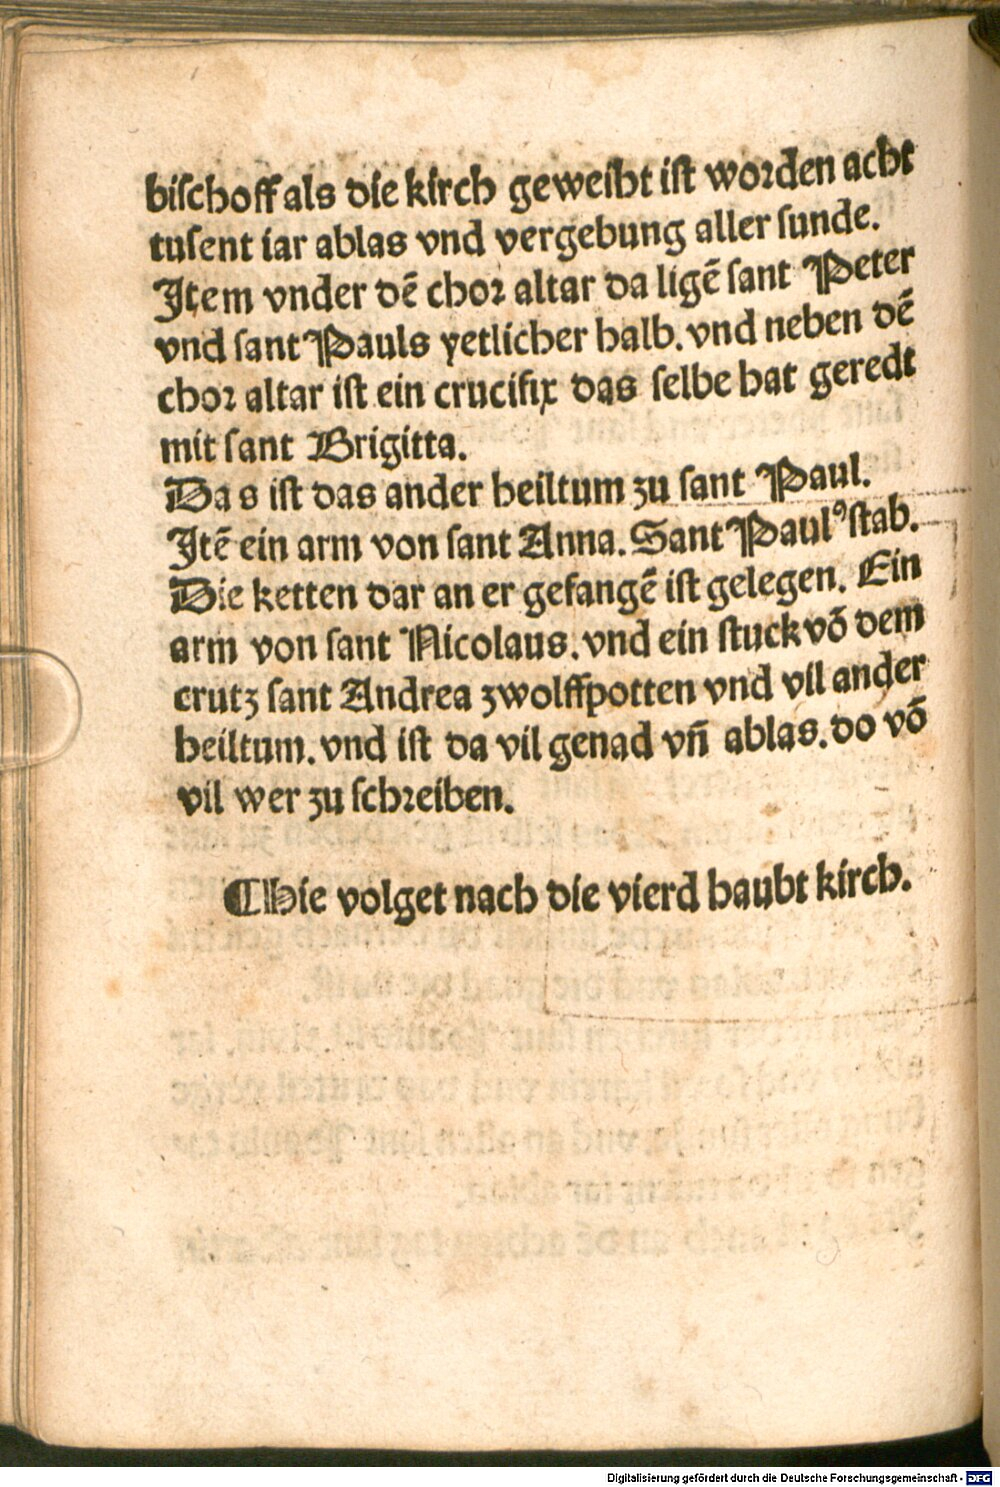 bischoff als die kirch geweiht ist worden acht
tusent iar ablas vnd vergebung aller sunde.
Item vnder dẽ chor altar da ligẽ sant Peter
vnd sant Pauls yetlicher halb. vnd neben dẽ
chor altar ist ein crucifix das selbe hat geredt
mit sant Brigitta.
Das ist das ander heiltum zu sant Paul.
Itẽ ein arm von sant Anna. Sant Paulꝰ stab.
Die ketten dar an er gefangẽ ist gelegen. Ein
arm von sant Nicolaus. vnd ein stuck võ dem
crutz sant Andrea zwolffpotten vnd vil ander
heiltum. vnd ist da vil genad vñ ablas. do võ
vil wer zu schreiben.
¶ Hie volget nach die vierd haubt kirch.
Digitalisierung gefördert durch die Deutsche Forschungsgemeinschaft - DFG